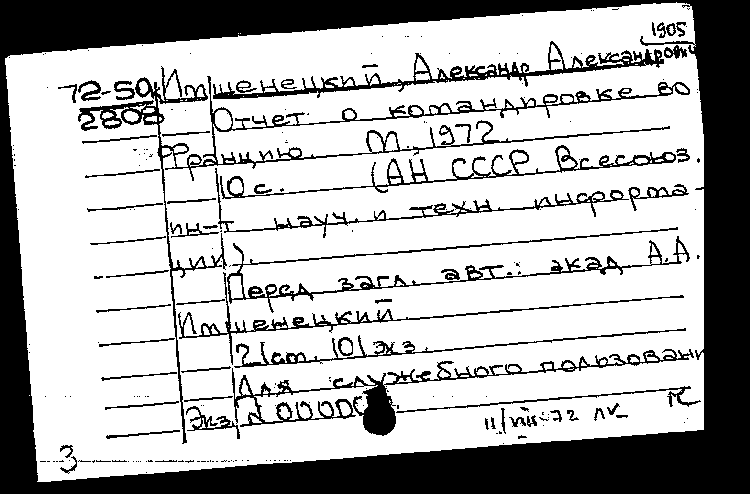 1905
72-50 Имшенецкий, Александр Александрович
2808 Отчет о командировке во
Францию. М., 1972.
10 с. (АН СССР. Всесоюз.
ин-т науч. и техн. информа-
ции).
Перед загл. авт.: акад. А.А.
Имшенецкий.
101 экз.
Для служебного пользован
Экз. N 0000
11/VIII-72 ЛК
3